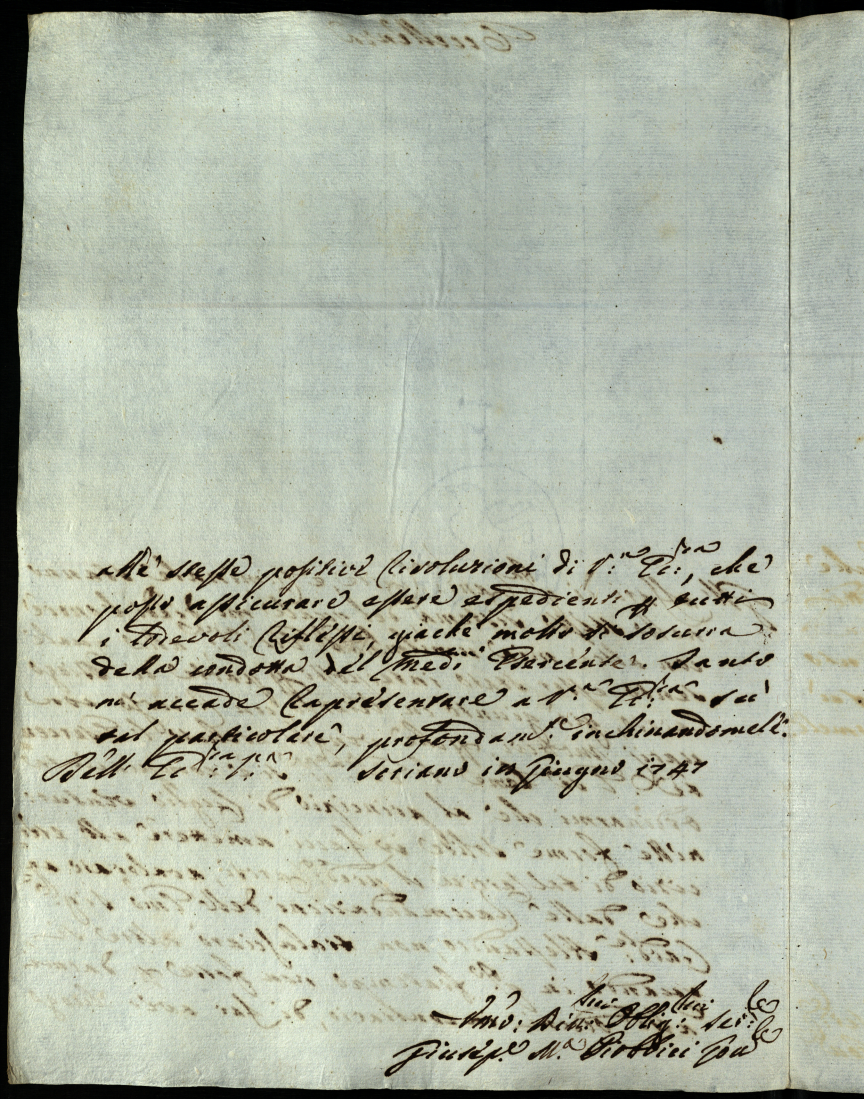 alle stesse positive risoluzioni di V.ra Ecc.za, che
posso assicurare essere espedienti p tutti
i lodevoli riflessi, giachè molto si sosurra
della condotta del med.mo Esercente. Tanto
mi accade rapresentare a V.ra Ecc.za su
tal particolare, profondam.te inchinandomele.
Dell' Ecc.za V.ra Soriano in Giugno 1747
Umo: Div.mo Obblig.mo Ser.le
Giusep.e M.a